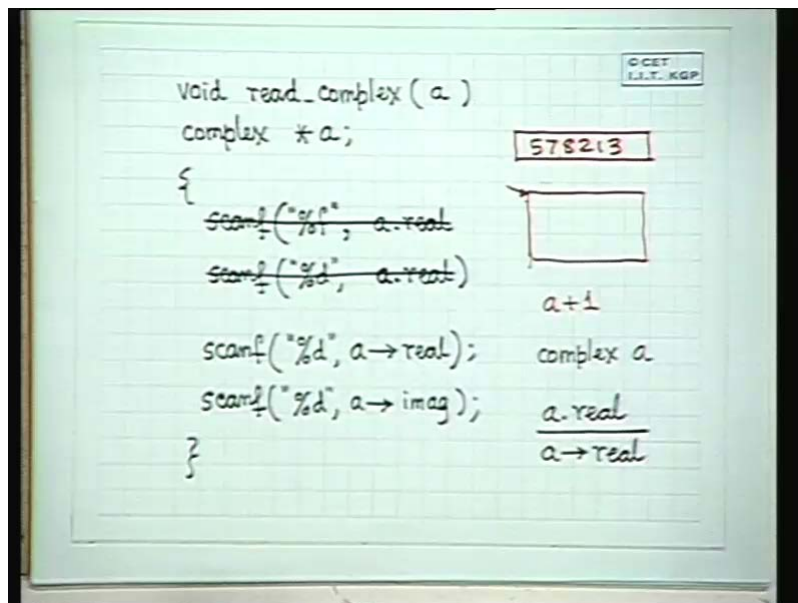 ©CET
I.I.T. KGP
void read_complex (a)
complex *a;
{
scanf("%f", a.real
scanf("%d", a.real)
scanf("%d", a→real);
scanf("%d", a→imag);
}
578213
a+1
complex a
a.real
a→real